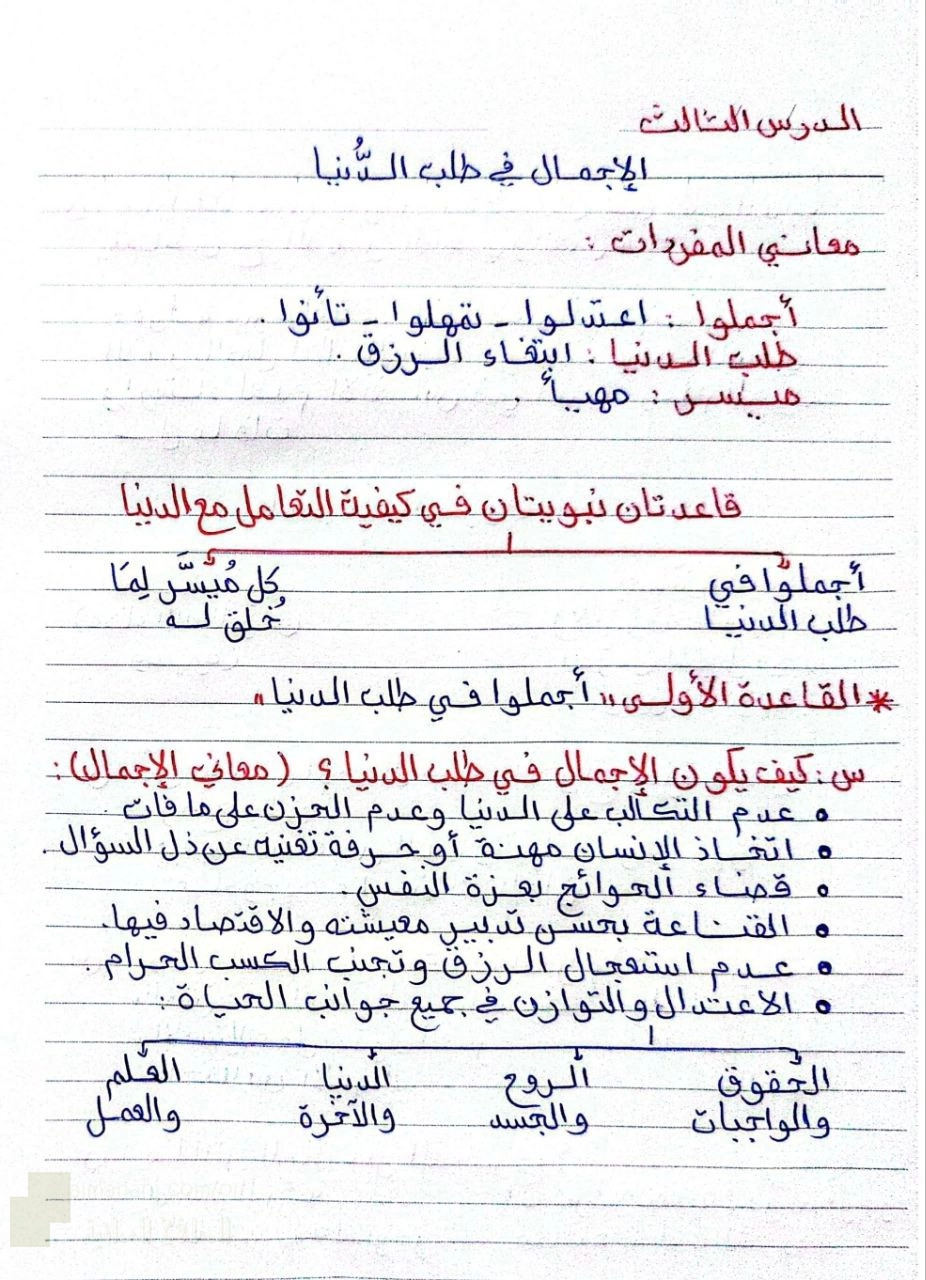 الدرس الثالث
الإجمال في طلب الدُّنيا
معاني المفردات :
أجملوا : اعتدلوا - تمهلوا - تأنوا .
طلب الدنيا : ابتغاء الرزق .
ميسر : مهيأ .
قاعدتان نبويتان في كيفية التعامل مع الدنيا
أجملوا في
كل مُيَسَّر لِمَا
طلب الدنيا
خُلق له
* القاعدة الأولى "أجملوا في طلب الدنيا"
س : كيف يكون الإجمال في طلب الدنيا ؟ (معاني الإجمال) :
• عدم التكالب على الدنيا وعدم الحزن على ما فات .
• اتخاذ الإنسان مهنة أو حرفة تغنيه عن ذل السؤال .
• قضاء الحوائج بعزة النفس .
• القناعة بحسن تدبير معيشته والاقتصاد فيها .
• عدم استعجال الرزق وتجنب الكسب الحرام .
• الاعتدال والتوازن في جميع جوانب الحياة :
الحقوق الروح الدنيا العلم
والواجبات والجسد والآخرة والعمل